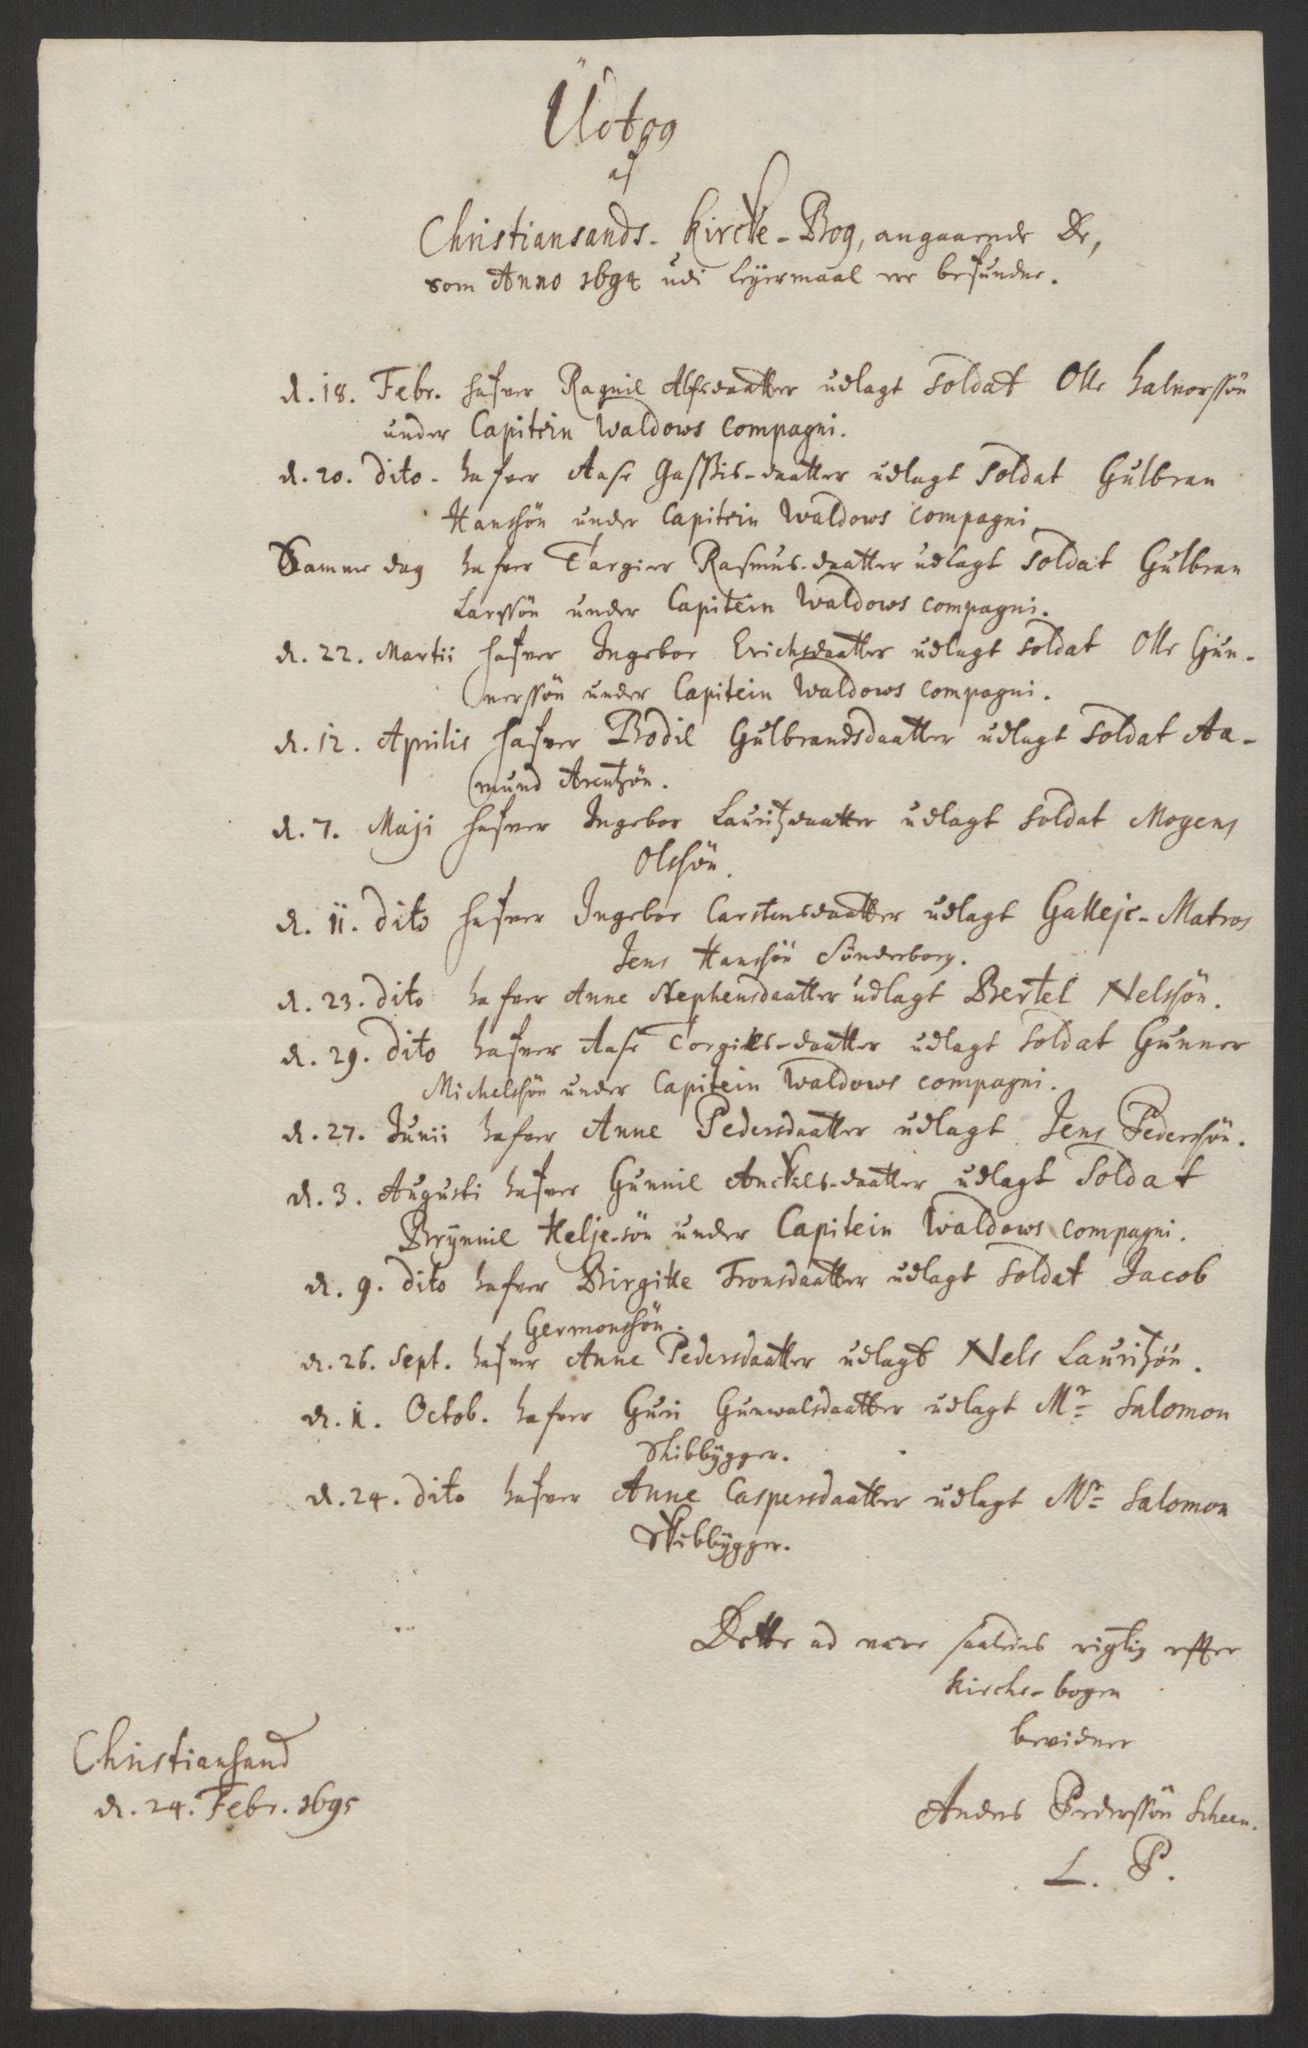 Udtog
af
Christiansands- Kircke-Bog, angaaende De,
som Anno 1694 udi Leyermaal ere befundne.
d. 18. Febr. hafver Ragnil Alfsdaatter udlagt Soldat Olle Halvorssön
under Capitein Waldows Compagni.
d. 20. dito. hafver Aase daatter udlagt Soldat Gulbran
Hanssön under Capitein Waldows Compagni
Samme dag hafver Targier Rasmus-daatter udlagt Soldat Gulbran
Larssön under Capitein Waldows compagni.
d. 22. Martii hafver Ingebor Erichsdaatter udlagt Soldat Olle Gun-
nerssön under Capitein Waldows compagni.
d. 12. Aprilis hafver Bodil Gulbrandsdaatter udlagt Soldat Aa-
mund Arentzön.
d. 7. Maji hafver Ingebor Lauritzdaatter udlagt Soldat Mogens
Olssön.
d. 11. dito hafver Ingebor Carstensdaatter udlagt Galleje-Matros
Jens Hanssön Sönderborg.
d. 23. dito hafver Anne Stephensdaatter udlagt Bertel Nelssön.
d. 29. dito hafver Aase Torgils-daatter udlagt Soldat Gunner
Michelssön under Capitein Waldows compagni.
d. 27. Junii hafver Anne Pedersdaatter udlagt Jens Pederssön.
d. 3. Augusti hafver Gunnil Anckels-daatter udlagt Soldat
Brynnil Helje-sön under Capitein Waldows compagni.
d. 9. dito hafver Birgitte Tronsdaatter udlagt Soldat Jacob
Germonssön.
d. 26. Sept. hafver Anne Pedersdaatter udlagt Nels Lauritzön.
d. 11. Octob. hafver Guri Gunwalsdaatter udlagt Mr Salomon
Skibbygger.
d. 24. dito hafver Anne Caspersdaatter udlagt Mr Salomon
Skibbygger.
Dette ad være saaledes rigtig effter
Kircke-bogen
bevidner
Christiansand
d. 24. Febr. 1695
Anders Pederssön Scheen.
L. P.